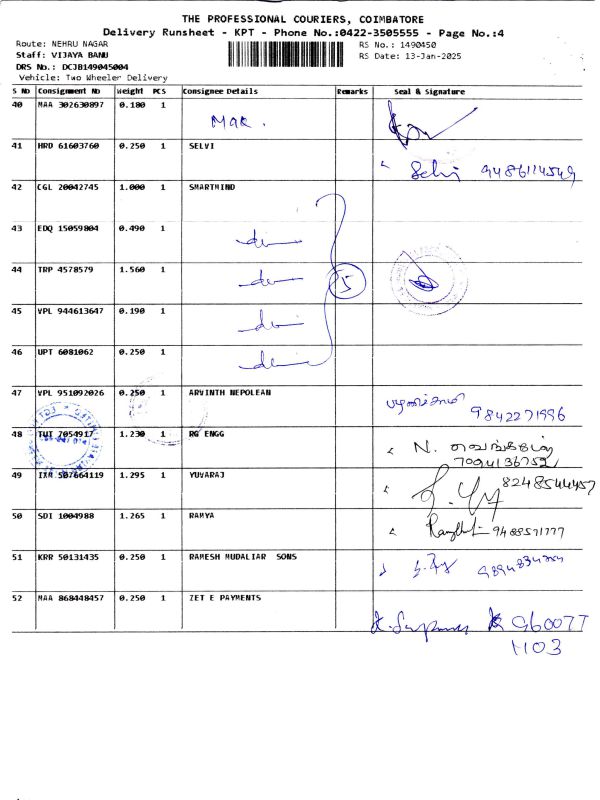 THE PROFESSIONAL COURIERS, COIMBATORE
Delivery Runsheet - KPT - Phone No.:0422-3505555 - Page No.:4
Route: NEHRU NAGAR RS No.: 1490450
Staff: VIJAYA BANU RS Date: 13-Jan-2025
DRS No.: DCJB149045004
Vehicle: Two Wheeler Delivery
S No Consignment No Weight PCS Consignee Details Remarks Seal & Signature
40 MAA 302630897 0.180 1
Mak.
41 HRD 61603760 0.250 1 SELVI
Selvi 9486114549
42 CGL 20042745 1.000 1 SMARTMIND
43 EDQ 15059804 0.490 1
44 TRP 4578579 1.560 1
5
45 VPL 944613647 0.190 1
46 UPT 6081062 0.250 1
47 VPL 951092026 0.250 1 ARVINTH NEPOLEAN
பழனிச்சாமி
9842271996
48 TUT 7054917 1.230 1 RG ENGG
N.
7094136752
49 IXM 507664119 1.295 1 YUVARAJ
8248544457
50 SDI 1004988 1.265 1 RAMYA
9488571777
51 KRR 50131435 0.250 1 RAMESH MUDALIAR SONS
52 MAA 868448457 0.250 1 ZET E PAYMENTS
960077
1103